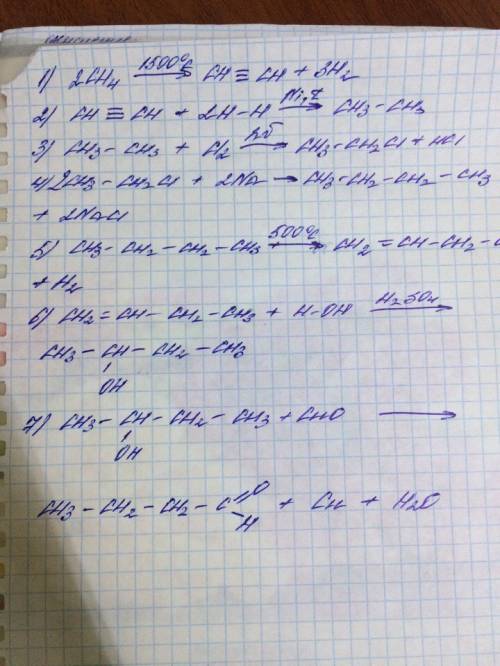 1) 2CH4 1500°C → CH ≡ CH + 3H2
2) CH ≡ CH + 2H-H Ni,t → CH3 - CH3
3) CH3 - CH3 + Cl2 → CH3 - CH2Cl + HCl
4) 2CH3 - CH2Cl + 2Na → CH3 - CH2 - CH2 - CH3
+ 2NaCl
5) CH3 - CH2 - CH2 - CH3 500°C → CH2 = CH - CH2 - C
+ H2
6) CH2 = CH - CH2 - CH3 + H-OH H2SO4 →
CH3 - CH - CH2 - CH3
OH
7) CH3 - CH - CH2 - CH3 + CuO →
OH
CH3 - CH2 - CH2 - C =O
- H + Cu + H2O